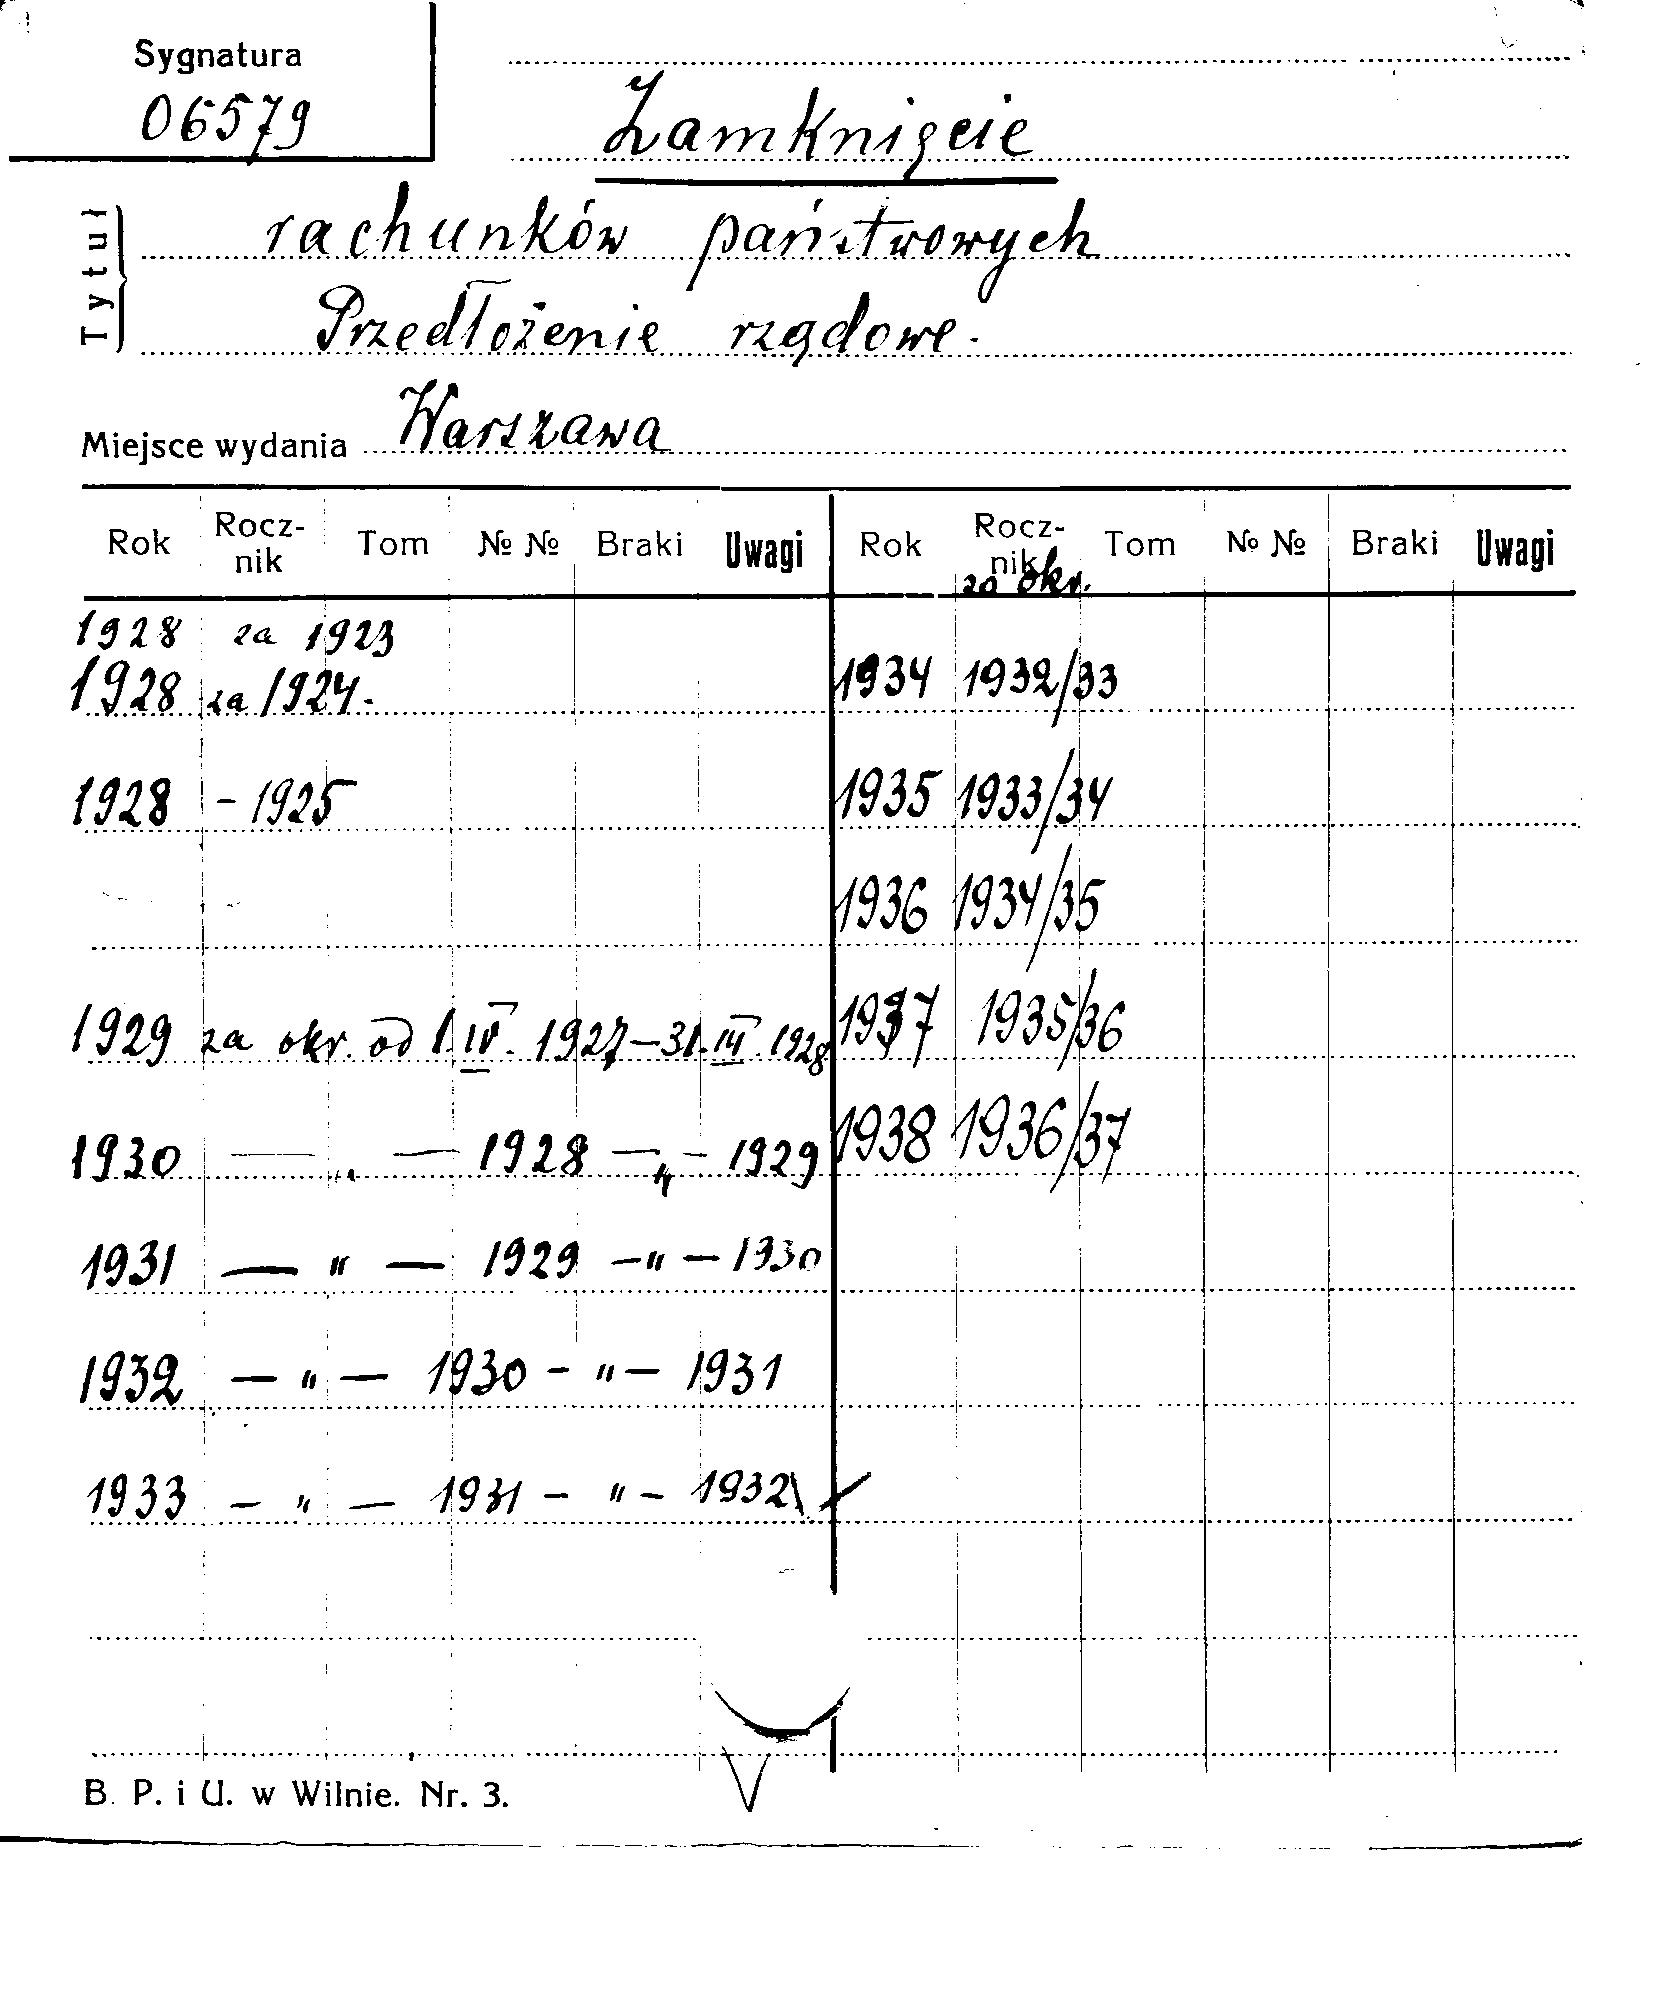 Sygnatura
06579
Zamknięcie
rachunków państwowych
Przedłożenie rządowe.
Tytuł
Miejsce wydania Warszawa
Rok Rocz-nik Tom №№ Braki Uwagi Rok Rocz-nik Tom №№ Braki Uwagi
za okr.
1928 za 1923
1928 za 1924.
1934 1932/33
1928 - 1925
1935 1933/34
1936 1934/35
1929 za okr. od 1.IV. 1927-31.III.1928
1937 1935/36
1930 — „ — 1928 — „ - 1929
1938 1936/37
1931 — " — 1929 - " - 1930
1932 — " — 1930 - " - 1931
1933 - " — 1931 - " - 1932
B. P. i U. w Wilnie. Nr. 3.